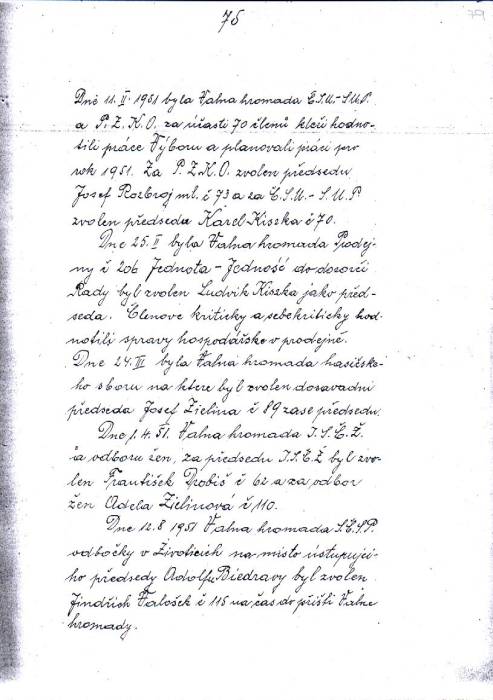 75
79
Dně 11. II. 1951 byla Valna hromada Č.S.U.-S.U.P.
a P.Z.K.O. za učasti 70 členů kteři hodno-
tili práce Výboru a planovali práci pro
rok 1951. Za P.Z.K.O. zvolen předsedu
Josef Rozbroj ml. č 73 a za Č.S.U.-S.U.P
zvolen předsedu Karel Kiszka č 70.
Dne 25.II byla Valna hromada Prodej-
ny č 206 Jednota - Jedność do dozorči
Rady byl zvolen Ludvik Kiszka jako před-
seda. Členove kriticky a sebekriticky hod-
notili spravy hospodářske v prodejně.
Dne 24.III byla Valna hromada hasičske-
ho sboru na ktere byl zvolen dosavadni
předseda Josef Zielina č 89 zase předsedu.
Dne 1.4.51. Valna hromada J.S.Č.Ž.
a odboru žen, za předsedu J.S.Č.Ž byl zvo-
len František Drobiš č 62 a za odbor
žen Adela Zielinová č 110.
Dne 12.8 1951 Valna hromada S.Č.S.P.
odbočky v Životicich na misto ústupujici-
ho předsedy Adolfa Biedravy byl zvolen
Jindřich Valošek č 115 na čas do přišti Valne
hromady.